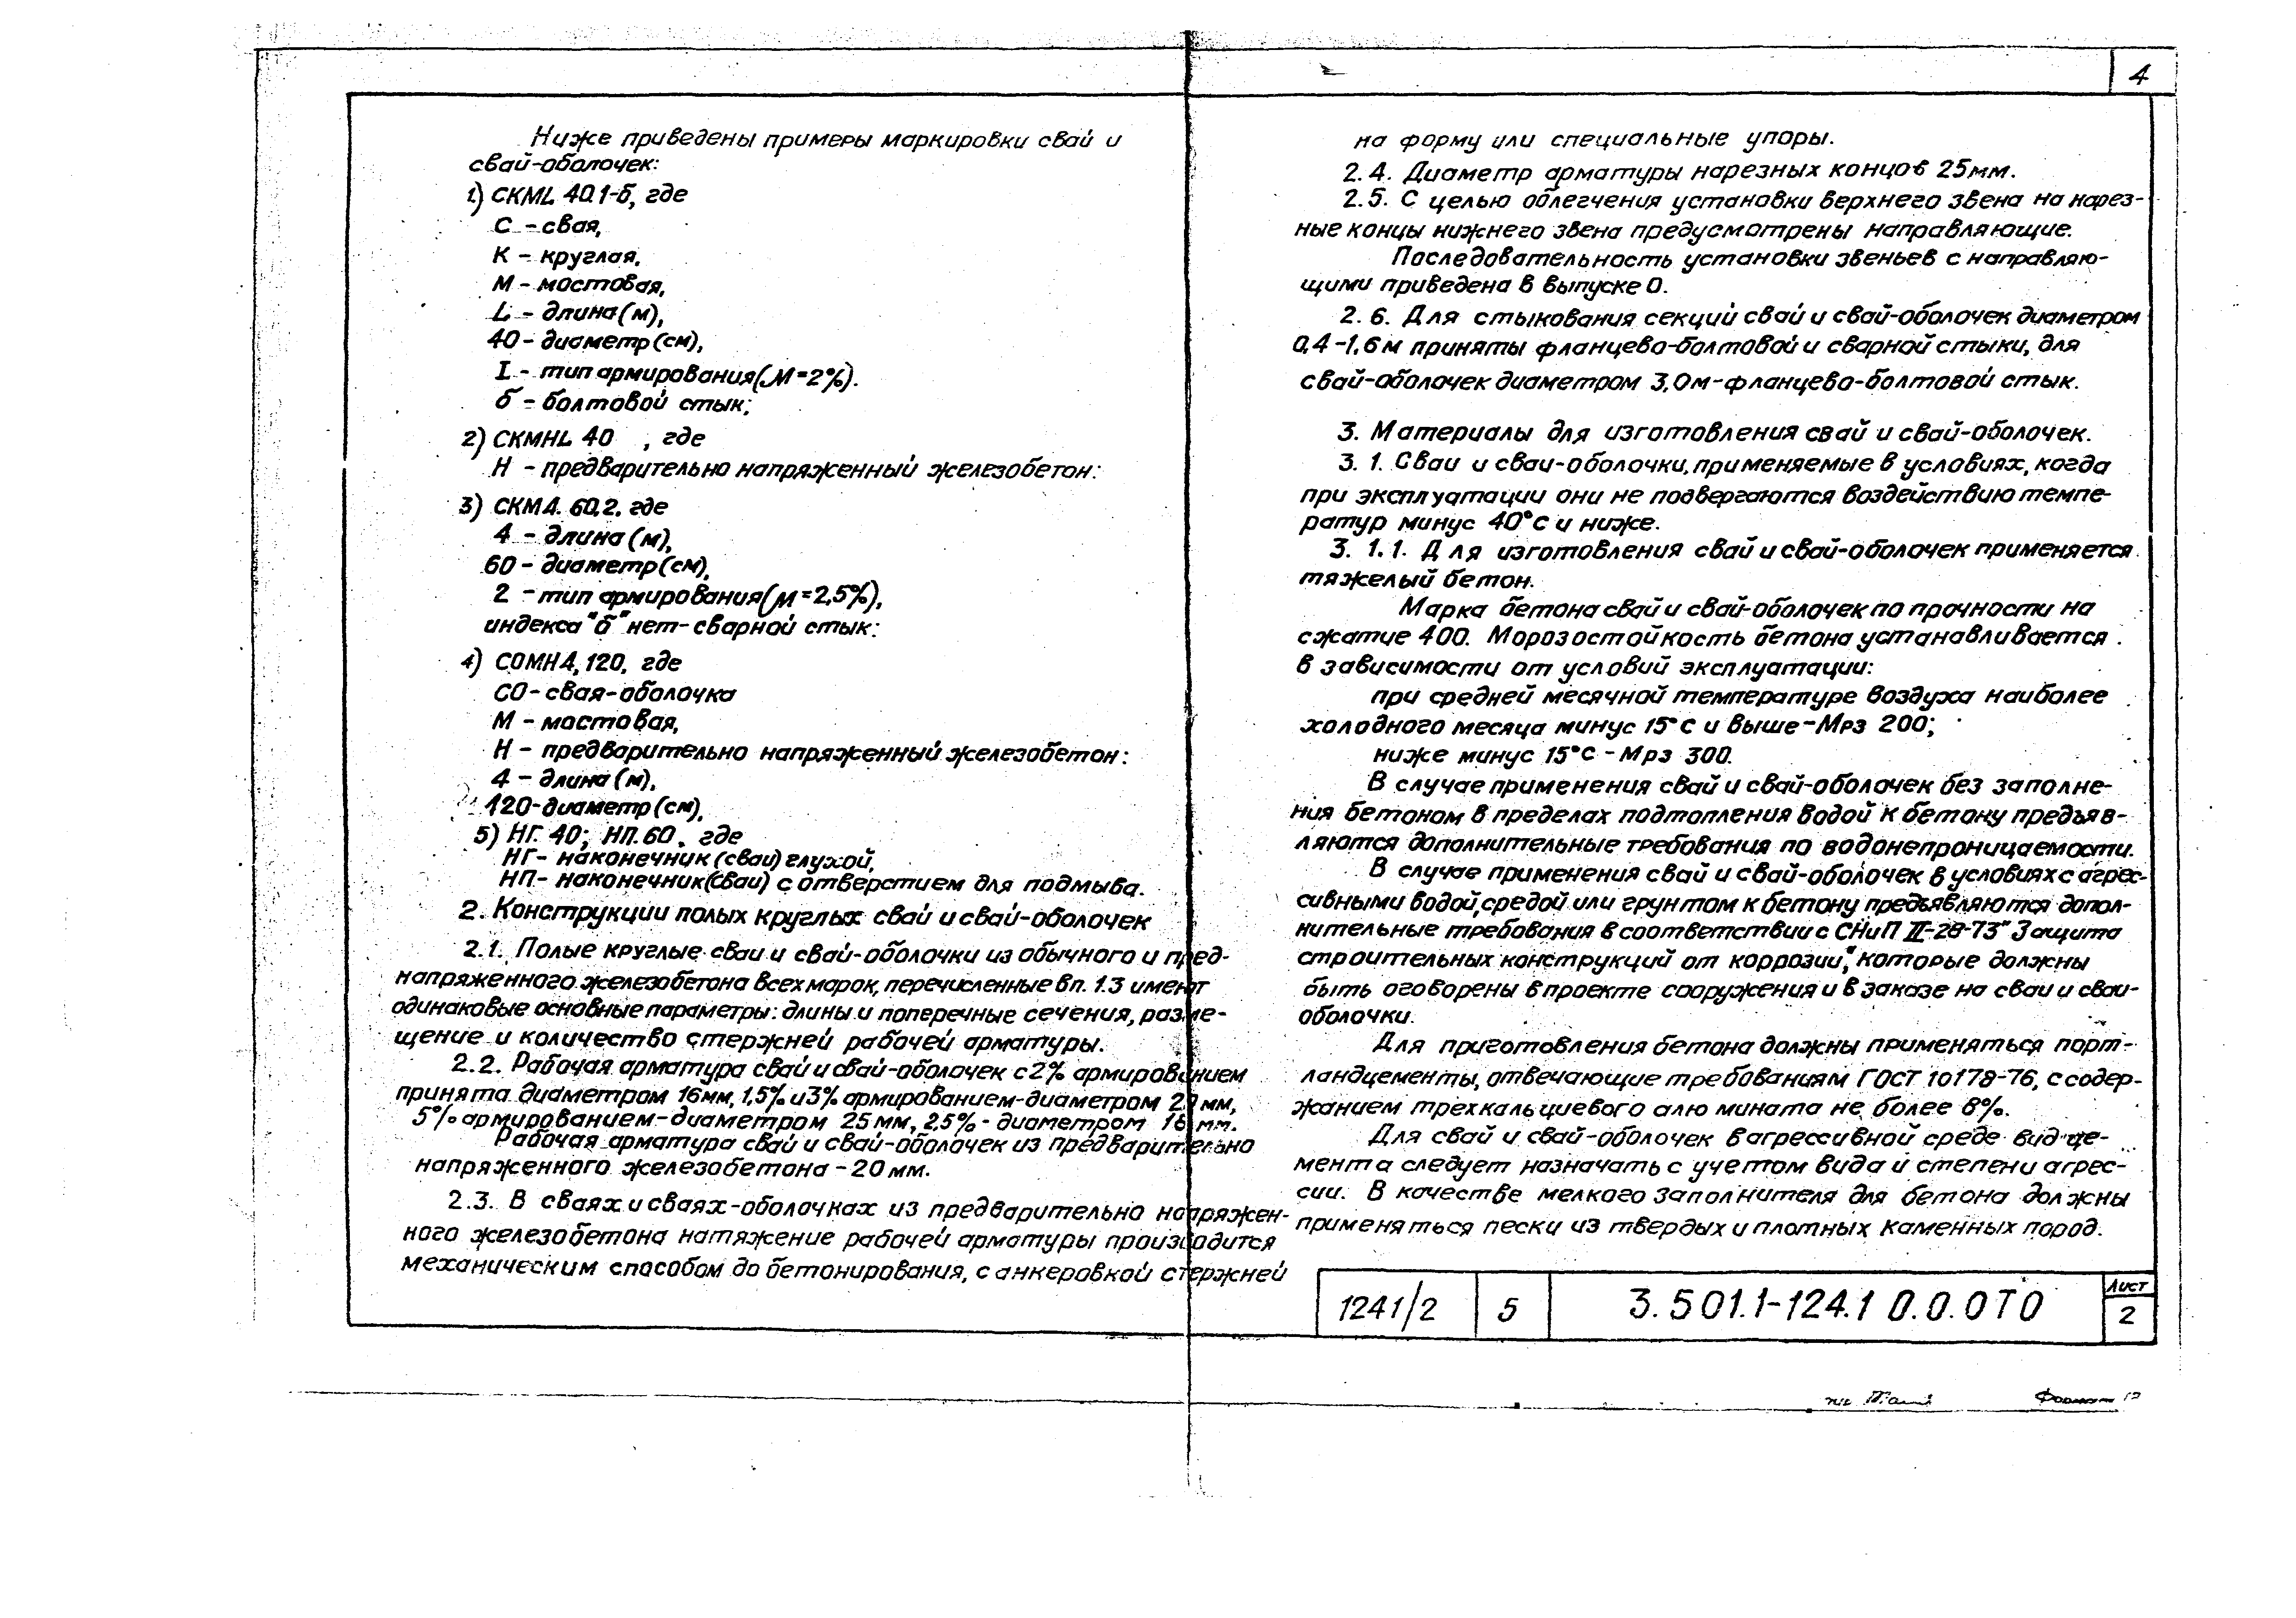 4
Ниже приведены примеры маркировки свай и
свай-оболочек:
1) СКМL 40.1-б, где
С - свая,
К - круглая,
М - мостовая,
L - длина (м),
40 - диаметр (см),
I - тип армирования (М=2%).
б - болтовой стык;
2) СКМНL 40 , где
Н - предварительно напряженный железобетон:
3) СКМ4. 60.2. где
4 - длина (м),
60 - диаметр (см),
2 - тип армирования (М=2,5%),
индекса "б" нет - сварной стык:
4) СОМН4, 120, где
СО - свая-оболочка
М - мостовая,
Н - предварительно напряженный железобетон:
4 - длина (м),
120 - диаметр (см),
5) НГ. 40; НП. 60. где
НГ - наконечник (сваи) глухой,
НП - наконечник (сваи) с отверстием для подмыва.
2. Конструкции полых круглых свай и свай-оболочек
2.1. Полые круглые сваи и свай-оболочки из обычного и пред-
напряженного железобетона всех марок, перечисленные в п. 1.3 имеют
одинаковые основные параметры: длины и поперечные сечения, разме-
щение и количество стержней рабочей арматуры.
2.2. Рабочая арматура свай и свай-оболочек с 2% армированием
принята диаметром 16 мм, 1,5% и 3% армированием - диаметром мм,
5% армированием - диаметром 25 мм, 2,5% - диаметром 16 мм.
Рабочая арматура свай и свай-оболочек из предварительно
напряженного железобетона - 20 мм.
2.3. В сваях и сваях-оболочках из предварительно напряжен-
ного железобетона натяжение рабочей арматуры производится
механическим способом до бетонирования, с анкеровкой стержней
на форму или специальные упоры.
2.4. Диаметр арматуры нарезных концов 25 мм.
2.5. С целью облегчения установки верхнего звена на нарез-
ные концы нижнего звена предусмотрены направляющие.
Последовательность установки звеньев с направляю-
щими приведена в выпуске 0.
2.6. Для стыкования секций свай и свай-оболочек диаметром
0,4-1,6 м приняты фланцево-болтовой и сварной стыки, для
свай-оболочек диаметром 3,0 м - фланцево-болтовой стык.
3. Материалы для изготовления свай и свай-оболочек.
3.1. Сваи и сваи-оболочки, применяемые в условиях, когда
при эксплуатации они не подвергаются воздействию темпе-
ратур минус 40°С и ниже.
3.1.1. Для изготовления свай и свай-оболочек применяется
тяжелый бетон.
Марка бетона свай и свай-оболочек по прочности на
сжатие 400. Морозостойкость бетона устанавливается
в зависимости от условий эксплуатации:
при средней месячной температуре воздуха наиболее
холодного месяца минус 15°С и выше - Мрз 200;
ниже минус 15°С - Мрз 300.
В случае применения свай и свай-оболочек без заполне-
ния бетоном в пределах подтопления водой к бетону предъяв-
ляются дополнительные требования по водонепроницаемости.
В случае применения свай и свай-оболочек в условиях с агрес-
сивными водой, средой или грунтом к бетону предъявляются допол-
нительные требования в соответствии с СНиП II-28-73 "Защита
строительных конструкций от коррозии", которые должны
быть оговорены в проекте сооружения и в заказе на сваи и сваи-
оболочки.
Для приготовления бетона должны применяться порт-
ландцементы, отвечающие требованиям ГОСТ 10178-76, с содер-
жанием трехкальциевого алюмината не более 8%.
Для свай и свай-оболочек в агрессивной среде вид це-
мента следует назначать с учетом вида и степени агрес-
сии. В качестве мелкого заполнителя для бетона должны
применяться пески из твердых и плотных каменных пород.
1241/2 5 3.501.1-124.1 0.0.0 ТО Лист 2
Формат